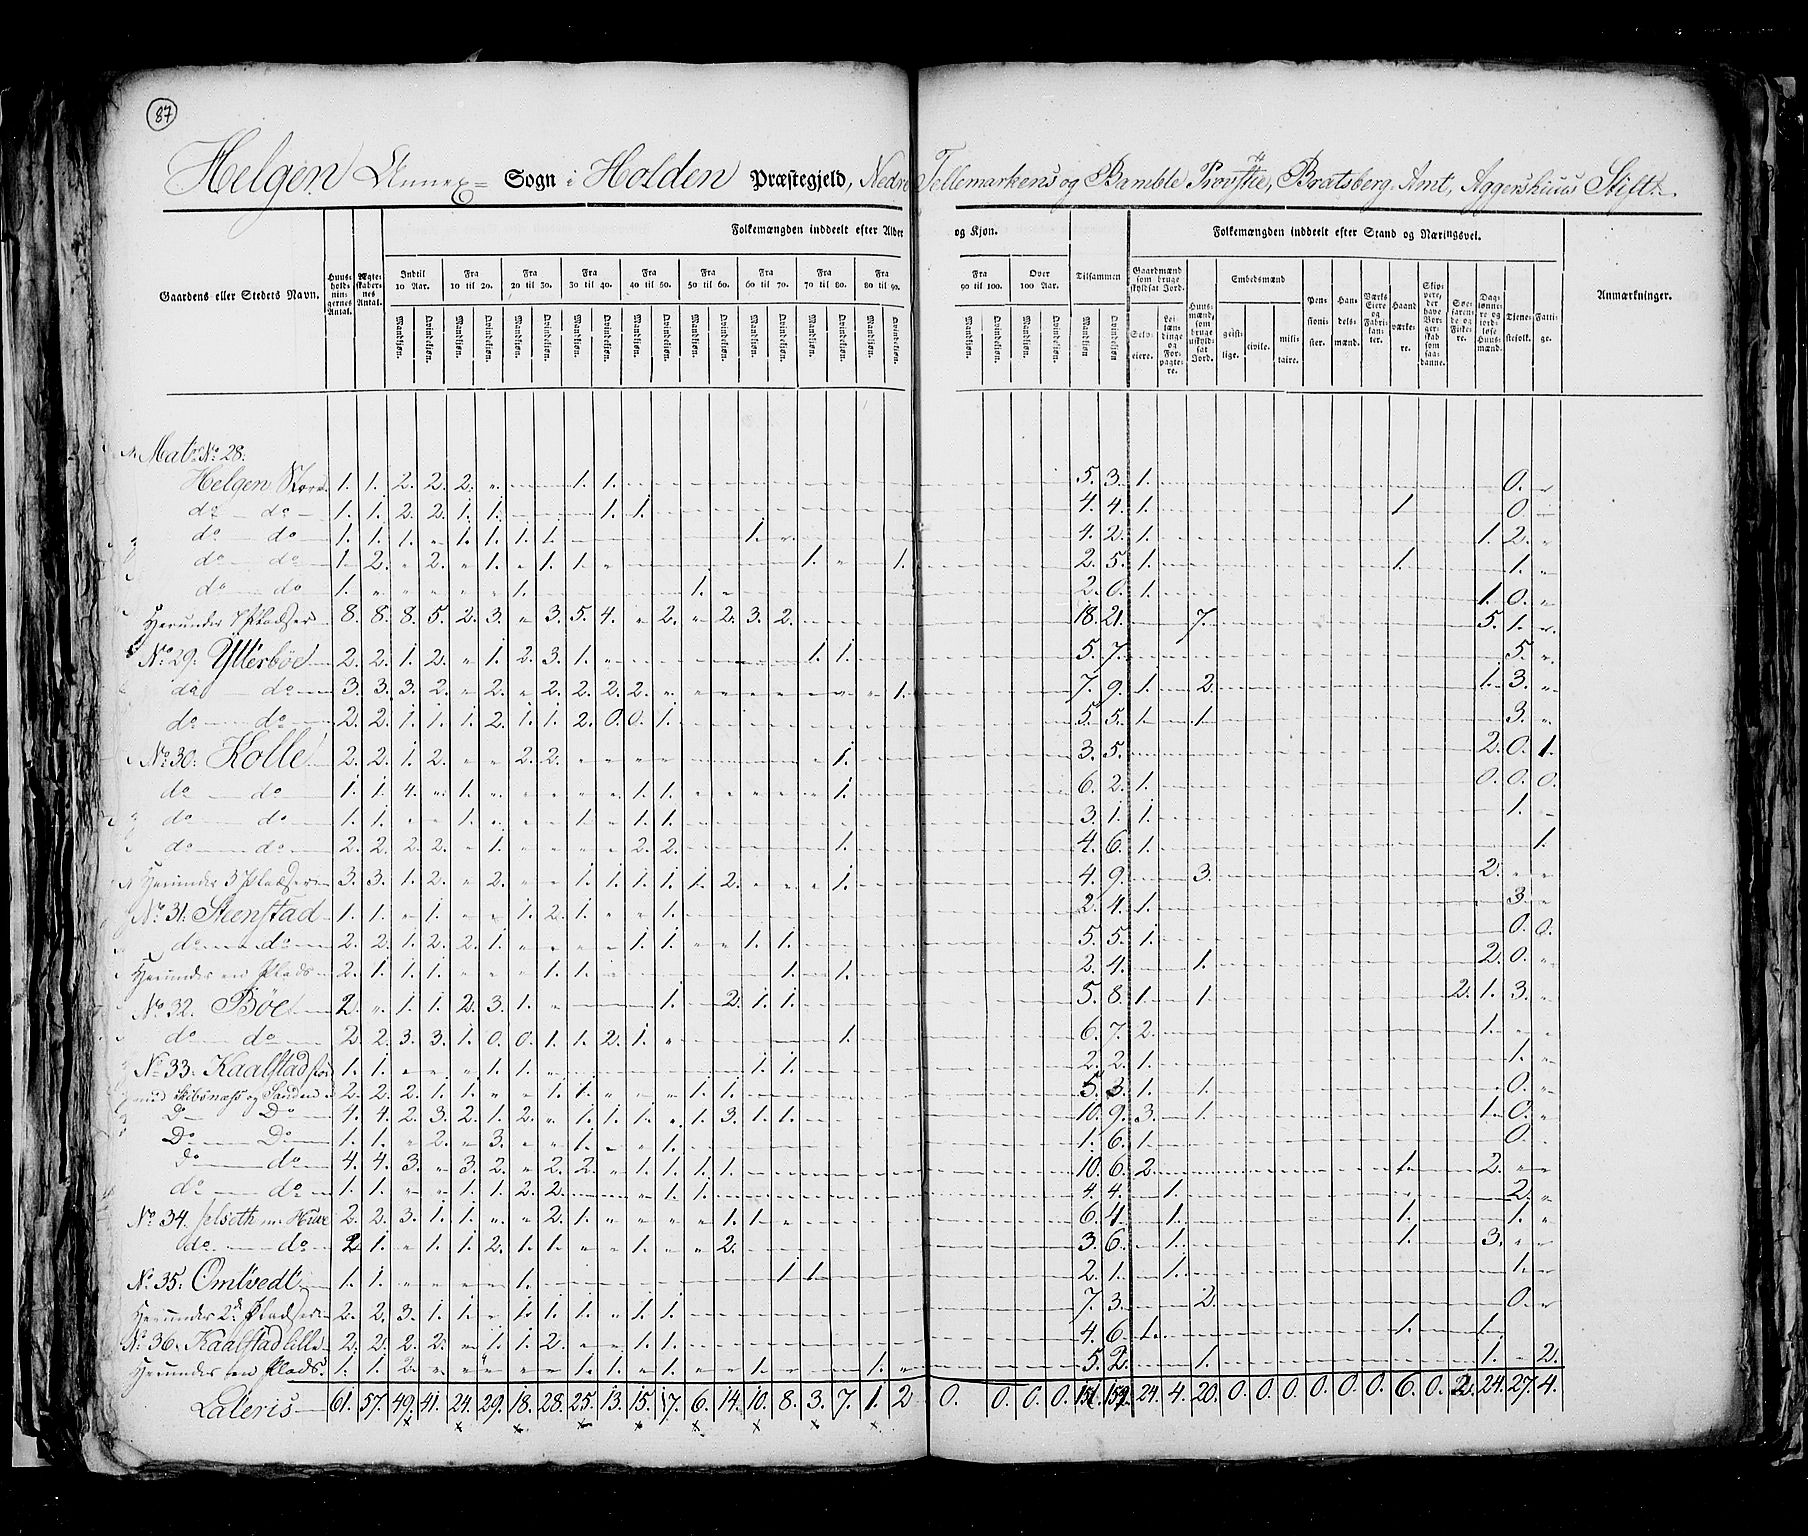 87
Helgen Annex= Sogn i Holden Præstegjeld, Nedre Tellemarkens og Bamble Provstie, Bratsberg Amt, Aggershuus Stift.
Folkemængden inddeelt efter Alder og Kjøn. Folkemængden inddeelt efter Stand og Næringsvei.
Gaardens eller Stedets Navn. Huusholdningernes Antal. Ægteskabernes Antal. Indtil 10 Aar. Fra 10 til 20. Fra 20 til 30. Fra 30 til 40. Fra 40 til 50. Fra 50 til 60. Fra 60 til 70. Fra 70 til 80. Fra 80 til 90. Fra 90 til 100. Over 100 Aar. Tilsammen Gaardmænd som bruge skyldsat Jord. Huusmænd, som bruge uskyldsat Jord. Embedsmænd Pensionister. Handelsmænd. Værks Eiere og Fabrikanter. Haandværkere. Skippere, der have Borgerskab som saadanne. Søefarende og Fiskere. Daglønnere og jordløse Huusmænd. Tjenestefolk. Fattige. Anmærkninger.
Mandkjøn. Qvindekjøn. Selveiere. Leilændinge og Forpagtere. geistlige. civile. militaire.
Mat. No 28.
Helgen 1. 1. 2. 2. 2. 1. 1. 5. 3. 1. 0.
do do 1. 1. 2. 2. 1. 1. 1. 1. 4. 4. 1. 1 0.
do do 1. 1. 1. 1. 1. 1. 1. 1. 4. 2. 1. 1. 2.
do do 1. 2. 2. 1. 1. 1. 1. 1. 2. 5. 1. 1. 1.
do do 1. 1. 1. 2. 0. 1. 1. 0.
Herunder 7 Pladser 8. 8. 8. 5. 2. 3. 3. 5. 4. 2. 2. 3. 2. 18. 21. 7. 5. 1.
No 29. Ytterböe 2. 2. 1. 2. 1. 2. 3. 1. 1. 1. 5. 7. 5.
do do 3. 3. 3. 2. 2. 2. 2. 2. 2. 1. 7. 9. 1. 2. 1. 3.
do do 2. 2. 1. 1. 1. 2. 1. 1. 2. 0. 0. 1. 5. 5. 1. 1. 3.
No 30. Kolle 2. 2. 1. 2. 2. 2. 1. 3. 5. 2. 0. 1.
do do 1. 1. 4. 1. 1. 1. 1. 6. 2. 1. 0. 0. 0.
do do 1. 1. 1. 1. 1. 1. 3. 1. 1. 1.
do do 2. 2. 2. 2. 1. 2. 2. 1. 4. 6. 1. 1.
Herunder 3 Pladser 3. 3. 1. 2. 2. 1. 1. 1. 1. 1. 2. 1. 4. 9. 3. 2.
No 31. Steenstad 1. 1. 1. 1. 2. 1. 1. 2. 4. 1. 3.
do do 2. 2. 1. 2. 2. 1. 1. 1. 1. 1. 5. 5. 1. 0. 0.
Herunder en Plads 2. 1. 1. 1. 1. 1. 1. 1. 2. 4. 1. 2. 0.
No 32. Böe 2. 1. 1. 2. 3. 1. 1. 2. 1. 1. 5. 8. 1. 1. 2. 1. 3.
do do 2. 2. 3. 3. 1. 0. 0. 1. 1. 2. 1. 1. 6. 7. 2. 1.
No 33. Kaalstad 1. 1. 1. 1. 1. 1. 2. 2. 1. 1.
med Skibsnæss og Sanden 2. 2. 2. 1. 1. 1. 1. 1. 1. 5. 3. 1. 1. 0.
Do Do 4. 4. 2. 3. 2. 1. 2. 1. 1. 1. 1. 3. 1. 1. 10. 9. 3. 1. 1. 0.
Do Do 1. 1. 2. 3. 1. 1. 1. 6. 1. 0.
Do do 4. 4. 3. 3. 2. 2. 2. 1. 1. 1. 1. 10. 6. 2. 1. 2.
do do 1. 1. 1. 1. 2. 2. 1. 1. 4. 4. 1. 2.
No 34. 2. 2. 3. 1. 1. 2. 1. 1. 1. 6. 4. 1. 1. 1.
do do 2. 1. 1. 1. 2. 1. 1. 1. 2. 3. 6. 1. 1. 3.
No 35. Omtvedt 1. 1. 1. 1. 1. 2. 1. 1. 1.
Herunder 2de Pladser 2. 2. 3. 1. 1. 1. 1. 1. 1. 1. 7. 3. 2. 0.
No 36. Kaalstad lille 2. 2. 2. 2. 1. 1. 2. 1. 1. 4. 6. 1. 1. 1.
Herunder en Plads 1. 1. 2. 1. 1. 1. 1. 1. 5. 2. 1. 1. 2.
Lateris 61. 57. 49. 41. 24. 29. 18. 28. 25. 13. 15. 17. 6. 14. 10. 8. 3. 7. 1. 2 0. 0. 0. 0. 151. 159. 24. 4. 20. 0. 0. 0. 0. 0. 0. 6. 0. 2. 24. 27. 4.